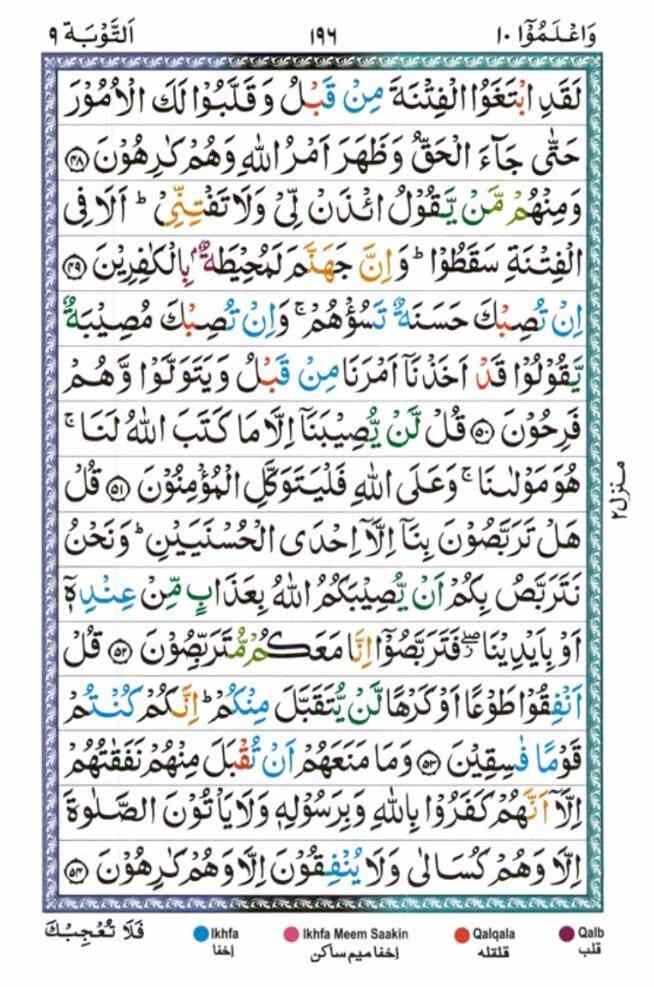 وَاعْلَمُوْٓا ١٠ ١٩٦ اَلتَّوْبَة ٩
لَقَدِ ابْتَغَوُا الْفِتْنَةَ مِنْ قَبْلُ وَقَلَّبُوْا لَكَ الْاُمُوْرَ
حَتّٰى جَآءَ الْحَقُّ وَظَهَرَ اَمْرُ اللّٰهِ وَهُمْ كٰرِهُوْنَ ﴿۴۸﴾
وَمِنْهُمْ مَّنْ يَّقُوْلُ ائْذَنْ لِّىْ وَلَا تَفْتِنِّىْ ؕ اَلَا فِى
الْفِتْنَةِ سَقَطُوْا ؕ وَاِنَّ جَهَنَّمَ لَمُحِيْطَةٌۢ بِالْكٰفِرِيْنَ ﴿۴۹﴾
اِنْ تُصِبْكَ حَسَنَةٌ تَسُؤْهُمْ ۚ وَاِنْ تُصِبْكَ مُصِيْبَةٌ
يَّقُوْلُوْا قَدْ اَخَذْنَآ اَمْرَنَا مِنْ قَبْلُ وَيَتَوَلَّوْا وَّهُمْ
فَرِحُوْنَ ﴿۵۰﴾ قُلْ لَّنْ يُّصِيْبَنَآ اِلَّا مَا كَتَبَ اللّٰهُ لَنَا ۚ
هُوَ مَوْلٰٮنَا ۚ وَعَلَى اللّٰهِ فَلْيَتَوَكَّلِ الْمُؤْمِنُوْنَ ﴿۵۱﴾ قُلْ
هَلْ تَرَبَّصُوْنَ بِنَآ اِلَّآ اِحْدَى الْحُسْنَيَيْنِ ؕ وَنَحْنُ
نَتَرَبَّصُ بِكُمْ اَنْ يُّصِيْبَكُمُ اللّٰهُ بِعَذَابٍ مِّنْ عِنْدِهٖٓ
اَوْ بِاَيْدِيْنَا ۖ فَتَرَبَّصُوْٓا اِنَّا مَعَكُمْ مُّتَرَبِّصُوْنَ ﴿۵۲﴾ قُلْ
اَنْفِقُوْا طَوْعًا اَوْ كَرْهًا لَّنْ يُّتَقَبَّلَ مِنْكُمْ ؕ اِنَّكُمْ كُنْتُمْ
قَوْمًا فٰسِقِيْنَ ﴿۵۳﴾ وَمَا مَنَعَهُمْ اَنْ تُقْبَلَ مِنْهُمْ نَفَقٰتُهُمْ
اِلَّآ اَنَّهُمْ كَفَرُوْا بِاللّٰهِ وَبِرَسُوْلِهٖ وَلَا يَاْتُوْنَ الصَّلٰوةَ
اِلَّا وَهُمْ كُسَالٰى وَلَا يُنْفِقُوْنَ اِلَّا وَهُمْ كٰرِهُوْنَ ﴿۵۴﴾
منزل ٢
فَلَا تُعْجِبْكَ
Ikhfa Ikhfa Meem Saakin Qalqala Qalb
اخفا اخفا میم ساکن قلقله قلب